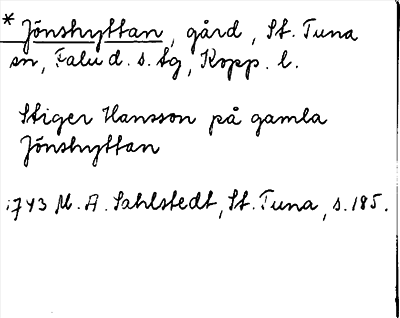 * Jönshyttan, gård, St. Tuna
sn, Falu d. s. tg, Kopp. l.
Stiger Hansson på gamla
Jönshyttan
1743 M. A. Sahlstedt, St. Tuna, s. 185.